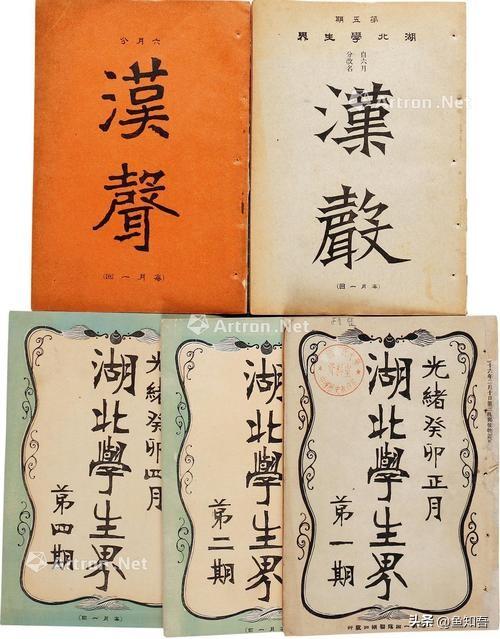 六月分
漢聲
(每月一回)
第五期
湖北學生界
自六月
分改名
漢聲
(每月一回)
光緒癸卯四月
湖北學生界
第四期
(每月一回)
湖北學生界
第二期
(每月一回)
光緒癸卯正月
湖北學生界
第一期
Artron.Net
Artron.Net
Artron.Net
Artron.Net
Artron.Net
头条 @鱼知吾